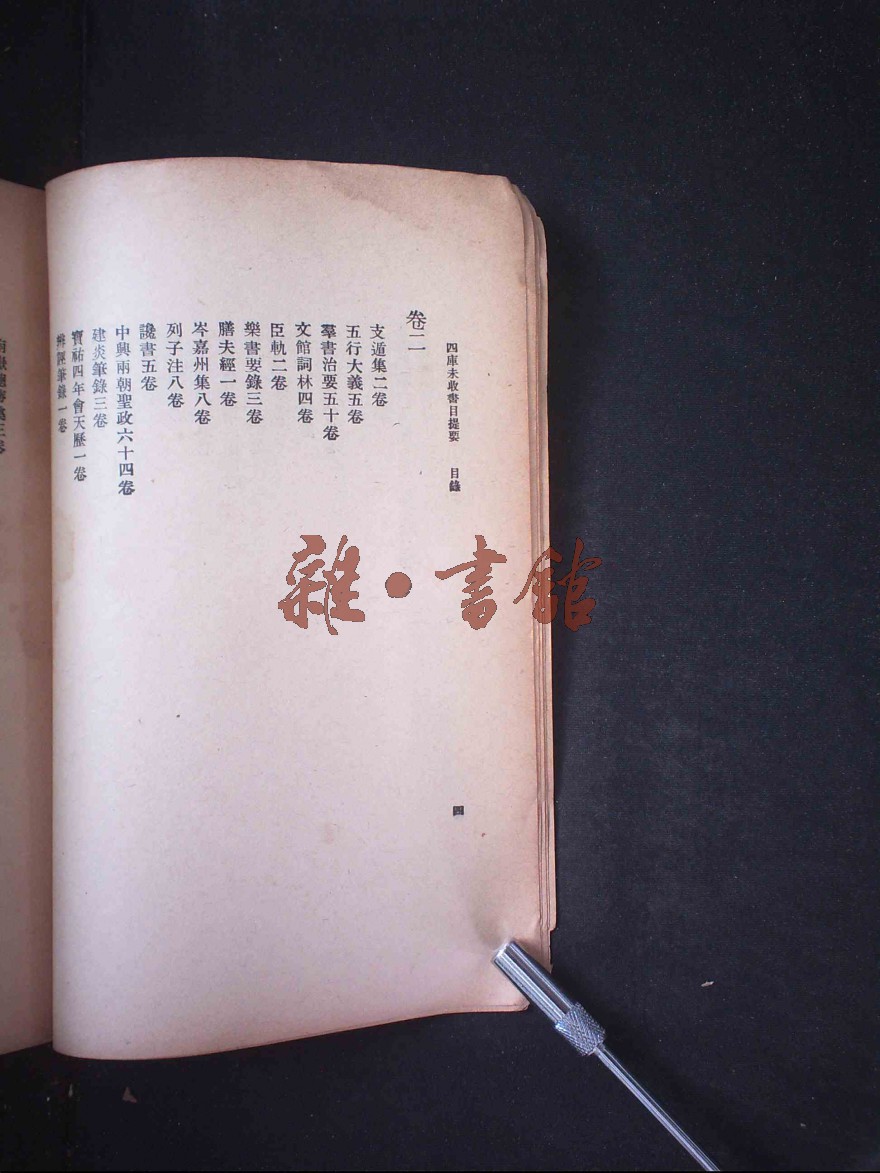 四庫未收書目提要 目錄
卷二
支遁集二卷
五行大義五卷
羣書治要五十卷
文館詞林四卷
臣軌二卷
樂書要錄三卷
膳夫經一卷
岑嘉州集八卷
列子注八卷
讒書五卷
中興兩朝聖政六十四卷
建炎筆錄三卷
寶祐四年會天歷一卷
辨誣筆錄一卷
四
雜·書館